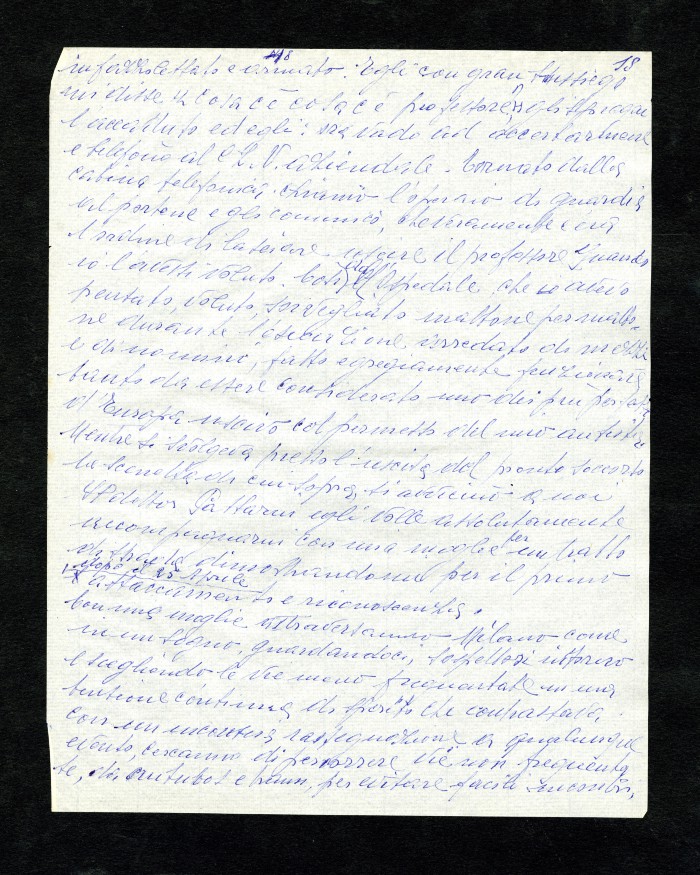 18 18
infazzolettato e armato. Egli con gran sussiego
mi disse "cosa c'è cosa c'è professore" gli spiegai
l'accaduto ed egli: sta vado ad accertarmene
e telefonò al C.L.N. aziendale. Tornato dalla
cabina telefonica chiamò l'operaio di guardia
al portone e gli comunicò, che veramente c'era
l'ordine di lasciare uscire il professore quando
io l'avessi voluto. Così dall'Ospedale che io avevo
pensato, voluto, sorvegliato mattone per matto-
ne durante l'esecuzione arredato di mobili
e di uomini, fatto egregiamente funzionare
tanto da essere considerato uno dei più
d'Europa uscivo col permesso del mio autista
Mentre si svolgeva presso l'uscita del pronto soccorso
la scenetta di cui sopra, si avvicinò a noi
il dottor egli volle assolutamente
accompagnarmi con mia moglie per un tratto
di strada dimostrandomi per il primo
dopo il 25 Aprile
attaccamento e riconoscenza.
Con mia moglie attraversammo Milano come
in un sogno, guardandoci, sospettosi intorno
e scegliendo le vie meno frequentate in una
tensione continua di spirito che contrastava,
con un'incosciente rassegnazione a qualunque
evento, cercammo di percorrere vie non frequenta
te, da autobus e tram, per evitare facili incontri,